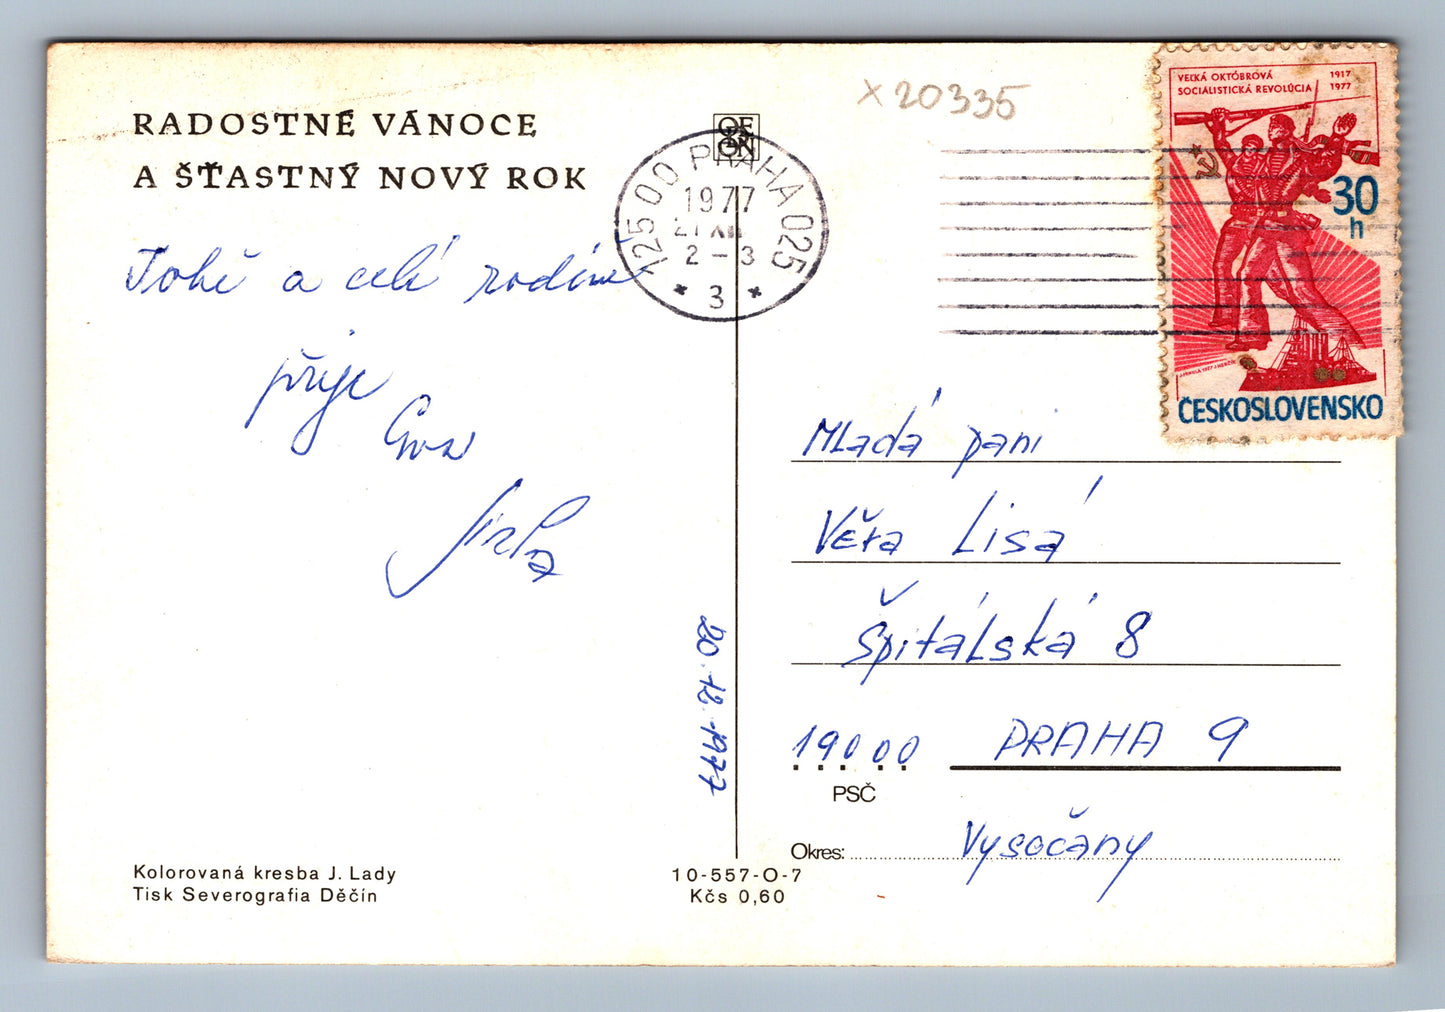 RADOSTNÉ VÁNOCE
A ŠŤASTNÝ NOVÝ ROK
Tobě a celé rodině
přeje
Jirka
20.12.1977
Kolorovaná kresba J. Lady
Tisk Severografia Děčín
10-557-O-7
Kčs 0,60
X 20335
ODEON
125 00 PRAHA 025
1977
21 XII
2 - 3
* 3 *
VEĽKÁ OKTÓBROVÁ 1917
SOCIALISTICKÁ REVOLÚCIA 1977
30
h
ČESKOSLOVENSKO
Mladá paní
Věra Lisá
Špitálská 8
19000 PRAHA 9
PSČ
Okres: Vysočany